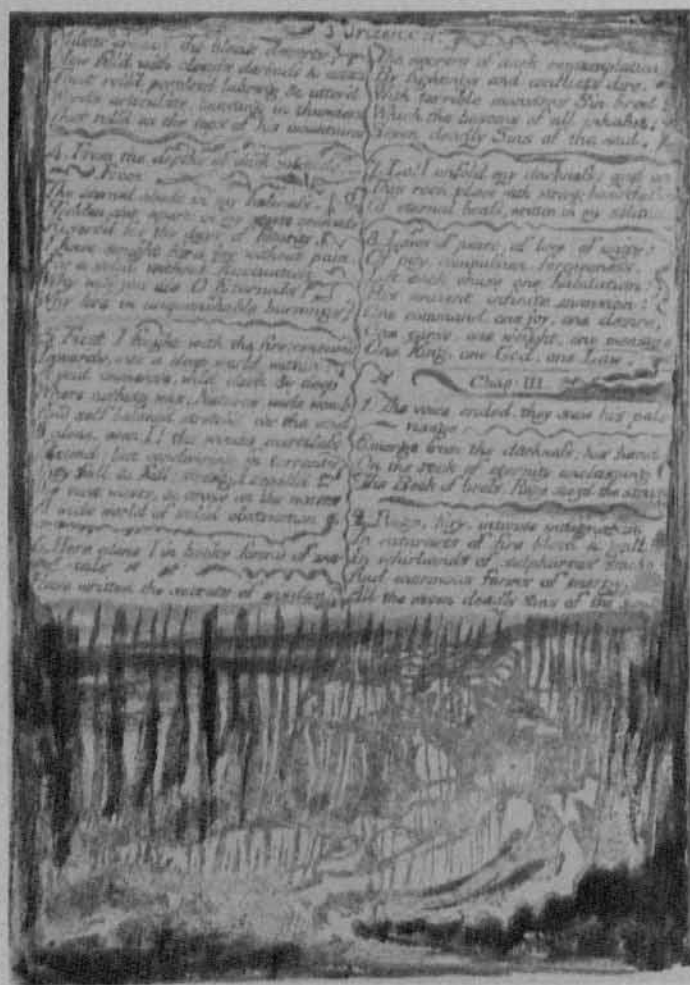 Urizen:
the bleak desarts
Now fill'd with clouds, darkness & waters
That roll'd perplex'd labring & utter'd
Words articulate, bursting in thunders
That roll'd on the tops of his mountains
4. From the depths of dark solitude.
From
The eternal abode in my holiness,
Hidden set apart in my stern counsels
Reserv'd for the days of futurity,
I have sought for a joy without pain
For a solid without fluctuation
Why will you die O Eternals?
Why live in unquenchable burnings?
5. First I fought with the fire; consum'd
Inwards, into a deep world within:
A void immense, wild dark & deep
Where nothing was; Natures wide womb
And self balanc'd stretch'd o'er the void
I alone, even I! the winds merciless
Bound; but condensing, in torrents
They fall & fall; strong I repell'd
The vast waves, & arose on the waters
A wide world of solid obstruction
6. Here alone I in books form'd of me-
-tals
Have written the secrets of wisdom
The secrets of dark contemplation
By fightings and conflicts dire,
With terrible monsters Sin-bred:
Which the bosoms of all inhabit;
Seven deadly Sins of the soul.
7. Lo! I unfold my darkness: and on
This rock, place with strong hand the
Of eternal brass, written in my solitude
8. Laws of peace, of love, of unity:
Of pity, compassion, forgiveness.
Let each chuse one habitation:
His ancient infinite mansion:
One command, one joy, one desire,
One curse, one weight, one measure
One King, one God, one Law.
Chap: III
1. The voice ended, they saw his pale
visage
Emerge from the darkness; his hand
On the rock of eternity unclasping
The Book of brass. Rage siez'd the strong
2. Rage, fury, intense indignation
In cataracts of fire blood & gall
In whirlwinds of sulphurous smoke:
And enormous forms of energy;
All the seven deadly sins of the